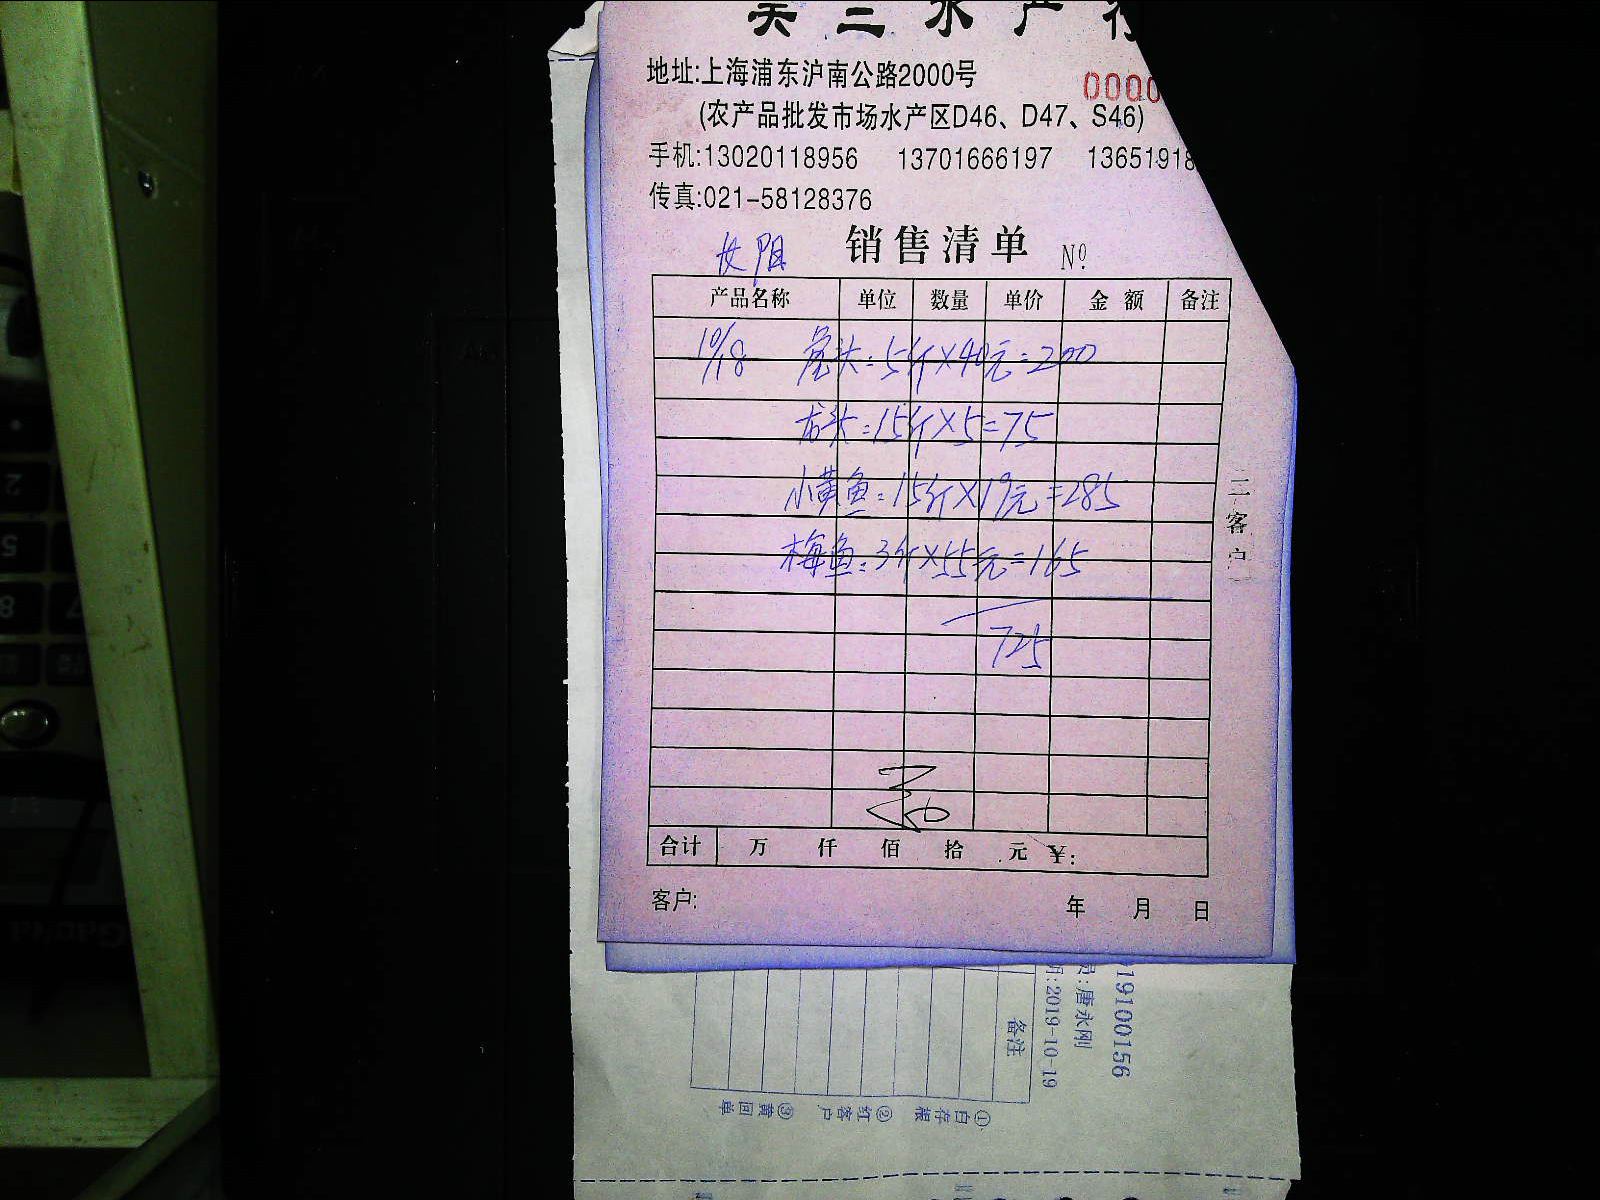 二水产
地址:上海浦东沪南公路2000号
0000
(农产品批发市场水产区D46、D47、S46)
手机:13020118956 13701666197 13651918
传真:021-58128376
销售清单 Nº
产品名称 单位 数量 单价 金额 备注
10/18 鱼头:5斤×40元=200
龙头:15斤×5=75
小黄鱼:15斤×19元=285
梅鱼:3斤×55元=165
725
合计 万 仟 佰 拾 元 ¥:
客户: 年 月 日
二客户
19100156
员:唐永刚
期:2019-10-19
备注
①白存根 ②红客户 ③黄回单
2
5
8
7